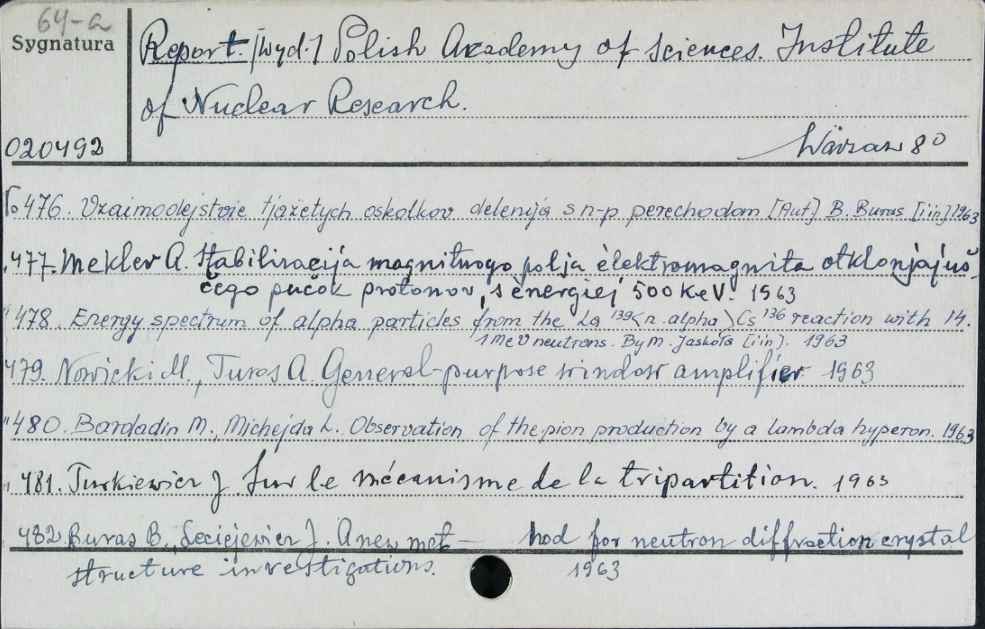 64-a
Sygnatura
020492
Report. [wyd.] Polish Academy of Sciences. Institute
of Nuclear Research.
Warsaw 80
No 476. Vzaimodejstvie tjažetych oskolkov delenija s n-p perechodom [Aut] B. Buras [i in] 1963
" 477. Mekler A. Stabilizacija magnitnogo polja èlektromagnita otklonjajuš-
čego pučok protonov, s ènergiej 500 keV. 1963
" 478. Energy spectrum of alpha particles from the La 139 (n alpha) Cs 136 reaction with 14.
1 MeV neutrons. By M. Jaskoła [i in]. 1963
479. Nowicki M., Turos A. General-purpose window amplifier 1963
" 480. Bardadin M., Michejda L. Observation of the pion production by a lambda hyperon. 1963
" 481. Turkiewicz J. Sur le mécanisme de la tripartition. 1963
482 Buras B., Leciejewicz J. A new met- hod for neutron diffraction crystal
structure investigations. 1963